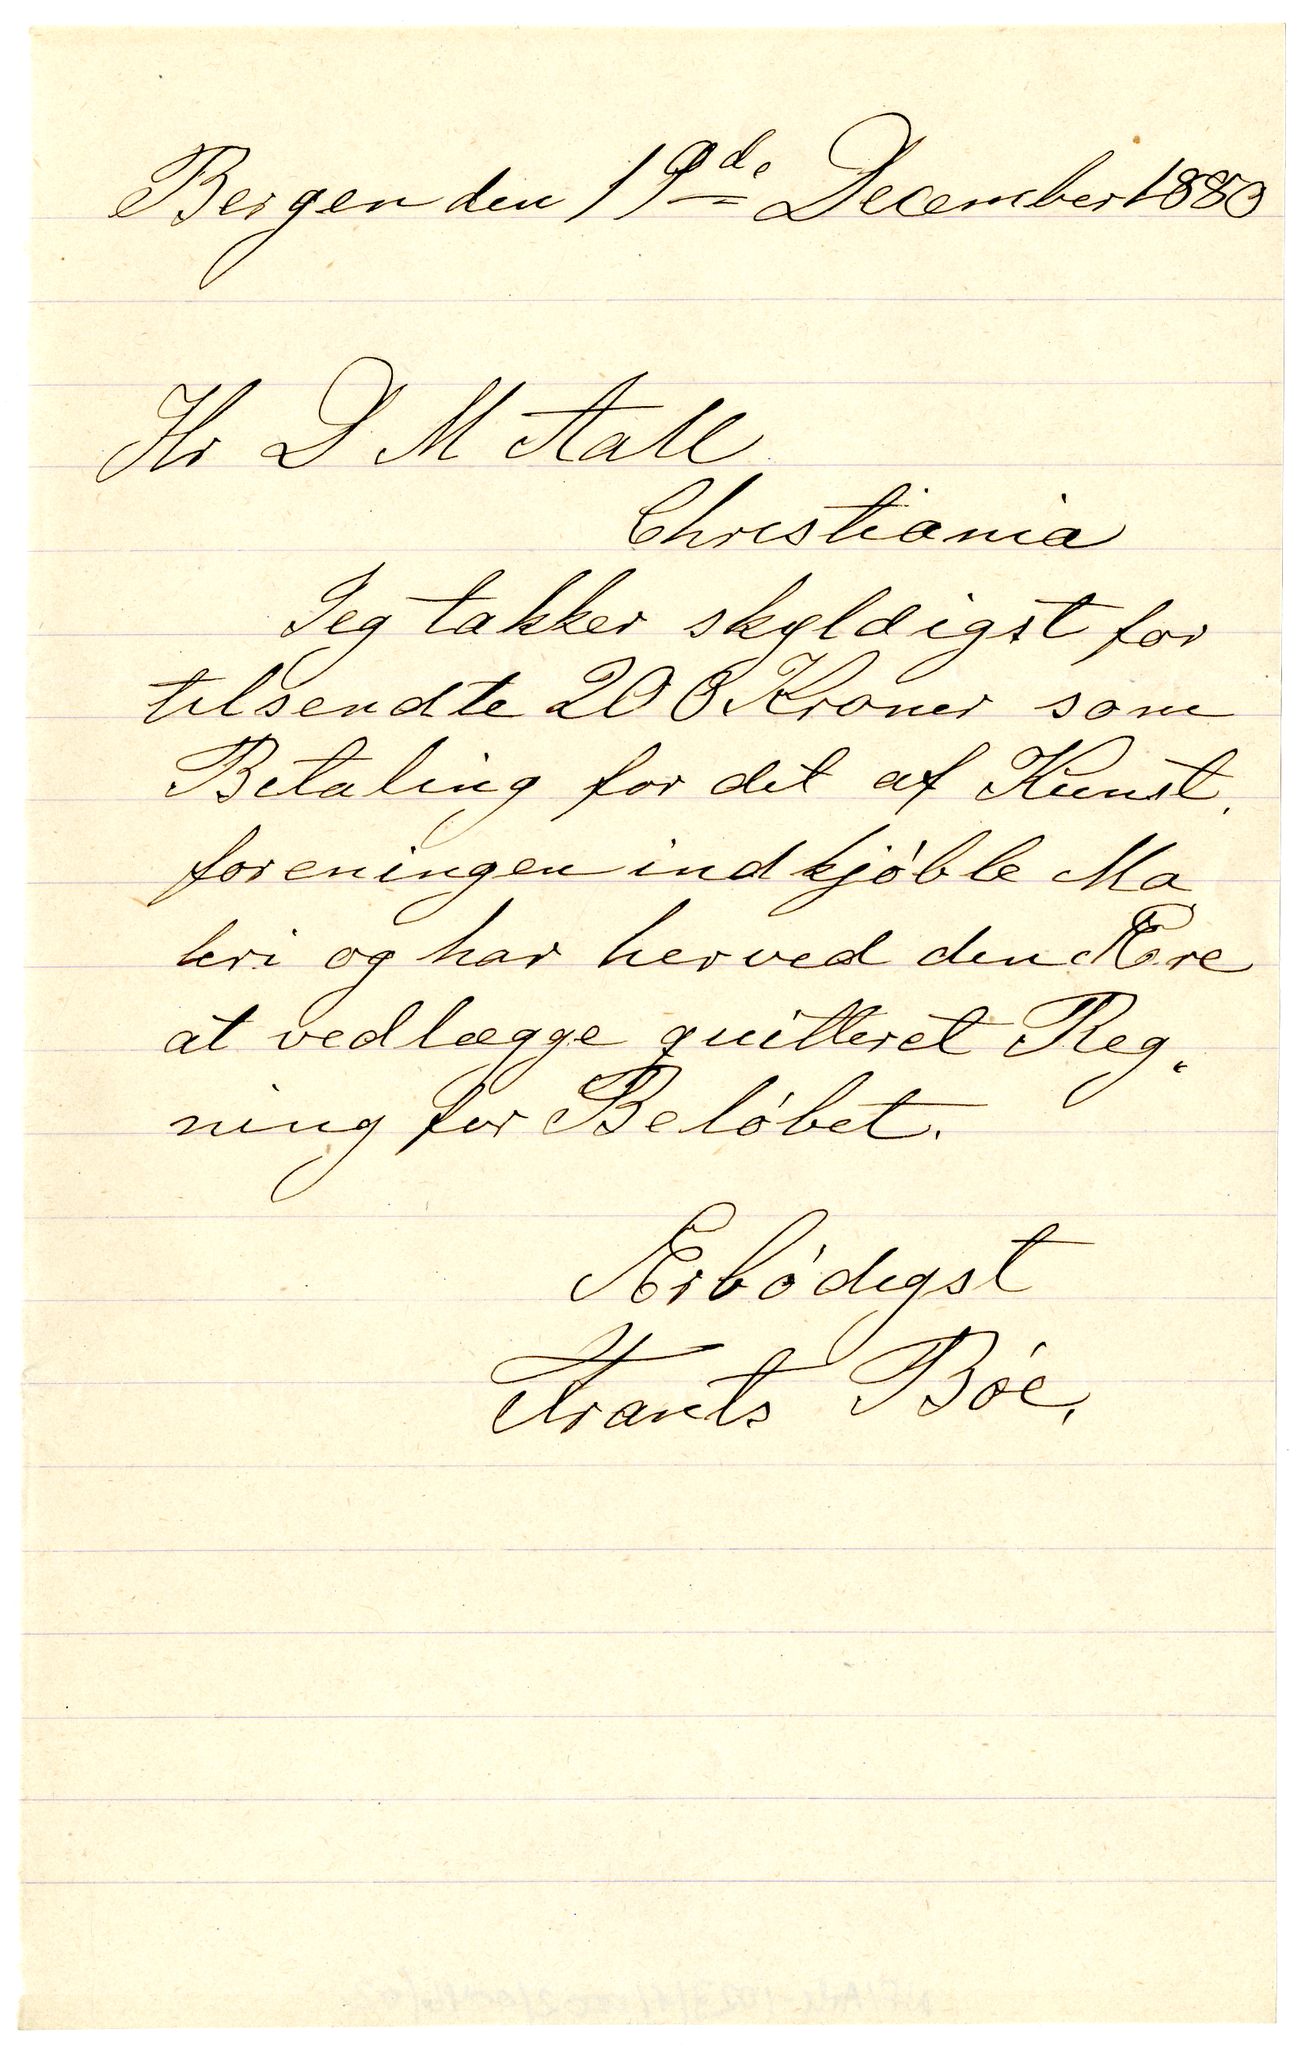 Bergen den 19de December 1883
Hr D M Aall
Christiania
Jeg takker skyldigst for
tilsendte 200 Kroner som
Betaling for det af Kunst,
foreningen indkjøbte Ma
leri og har herved den Ære
at vedlægge quitteret Reg„
ning for Beløbet.
Ærbødigst
Frants Bøe.